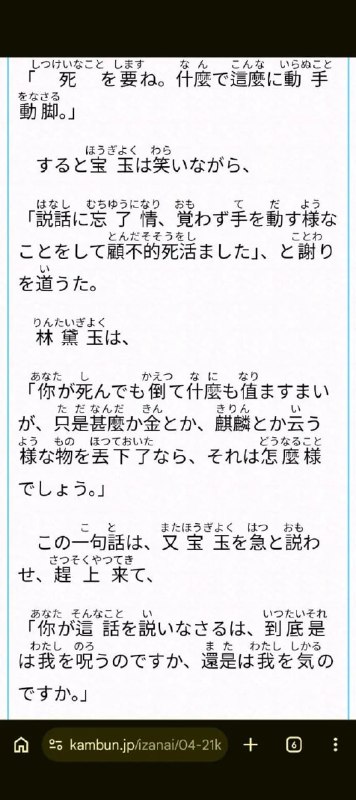 しつけいなこと します なん こんな いらぬこと
「 死 を要ね。什麼で這麼に動 手
をなさる
動脚。」
ほうぎよく わら
すると宝 玉は笑いながら、
はなし むちゆうになり おも て だ よう
「説話に忘 了 情、覚わず手を動す様な
とんだそそうをし ことわ
ことをして顧不的死活ました」、と謝り
い
を道うた。
りんたいぎよく
林 黛 玉は、
あなた し かえつ なに なり
「你が死んでも倒て什麼も値ますまい
ただなんだ きん きりん い
が、只是甚麼か金とか、麒麟とか云う
よう もの ほつておいた どうなること
様な物を丟下了なら、それは怎麼様
でしょう。」
こ と またほうぎよく はつ おも
この一句話は、又 宝 玉を急と説わ
さつそくやつてき
せ、趕 上 来て、
あなた そんなこと い いつたいそれ
「你が這 話を説いなさるは、到底是
わたし のろ また わたし しかる
は我を呪うのですか、還是は我を気の
ですか。」
kambun.jp/izanai/04-21k
6